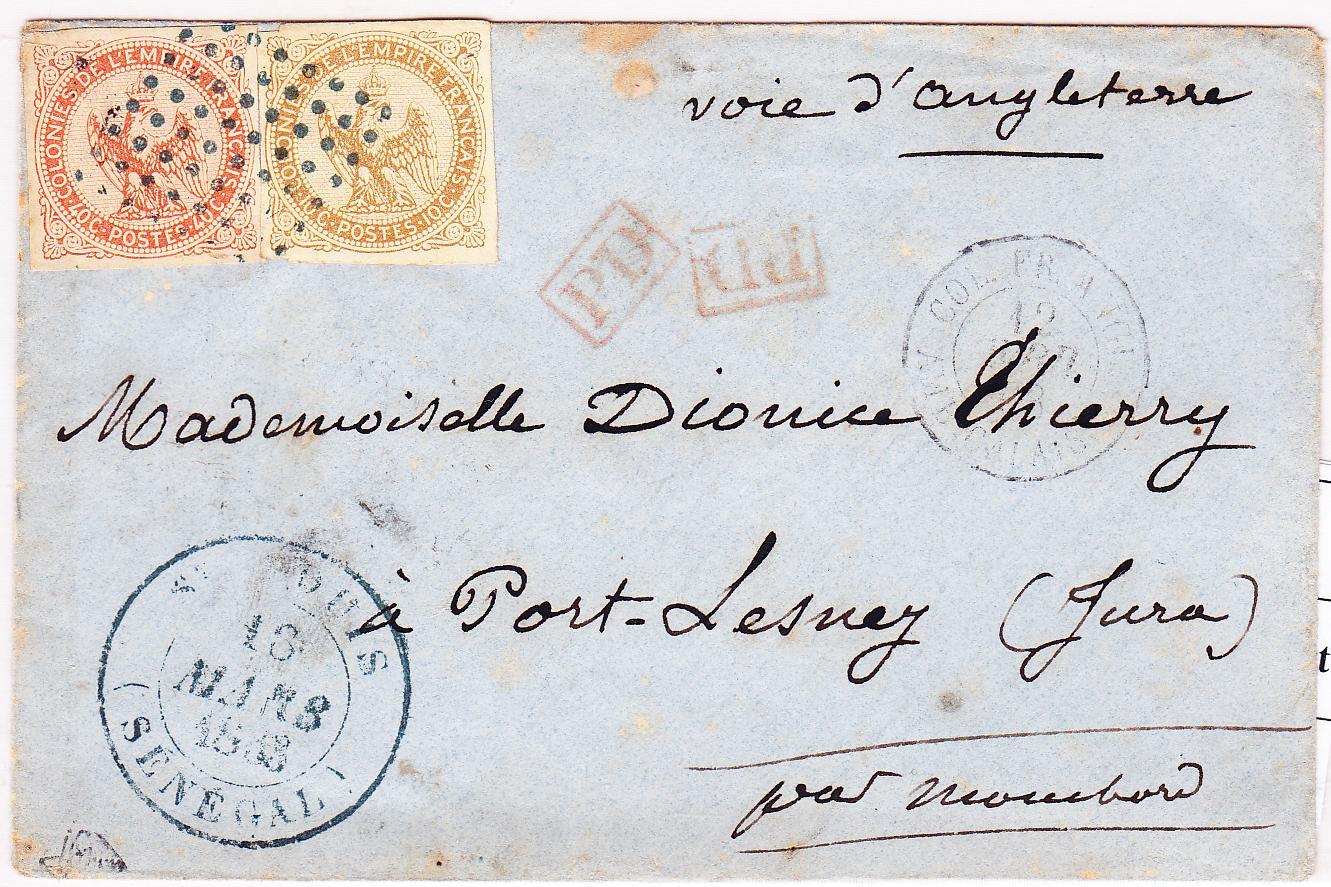 COLONIES DE L'EMPIRE FRANÇAIS
40C. POSTES. 40C.
COLONIES DE L'EMPIRE FRANÇAIS
10C. POSTES. 10C.
voie d'angleterre
PD
PD
COL. FR.
Mademoiselle Dionice Thierry
à Port-Lesney (Jura)
par Mouchard
ST LOUIS
18
MARS
1868
(SÉNÉGAL)